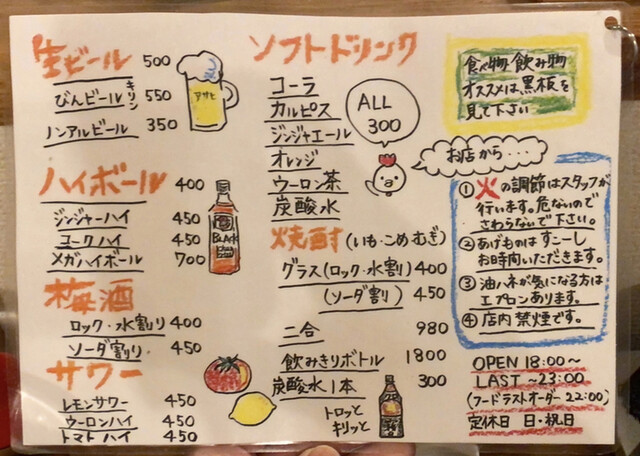 生ビール 500
アサヒ
びんビール キリン 550
ノンアルビール 350
ハイボール 400
ジンジャーハイ 450
コークハイ 450
メガハイボール 700
BLACK
梅酒
ロック・水割り 400
ソーダ割り 450
サワー
レモンサワー 450
ウーロンハイ 450
トマトハイ 450
ソフトドリンク
コーラ
カルピス
ジンジャエール
オレンジ
ウーロン茶
炭酸水
ALL
300
焼酎(いも・こめ・むぎ)
グラス(ロック・水割) 400
(ソーダ割) 450
二合 980
飲みきりボトル 1800
炭酸水1本 300
トロッと
キリッと
食べ物・飲み物
オススメは、黒板を
見て下さい
お店から・・・・
① 火の調節はスタッフが
行います。危ないので
さわらないで下さい。
② あげものは すこーし
お時間いただきます。
③ 油ハネが気になる方は
エプロンあります。
④ 店内 禁煙です。
OPEN 18:00〜
LAST 〜23:00
(フードラストオーダー 22:00)
定休日 日・祝日